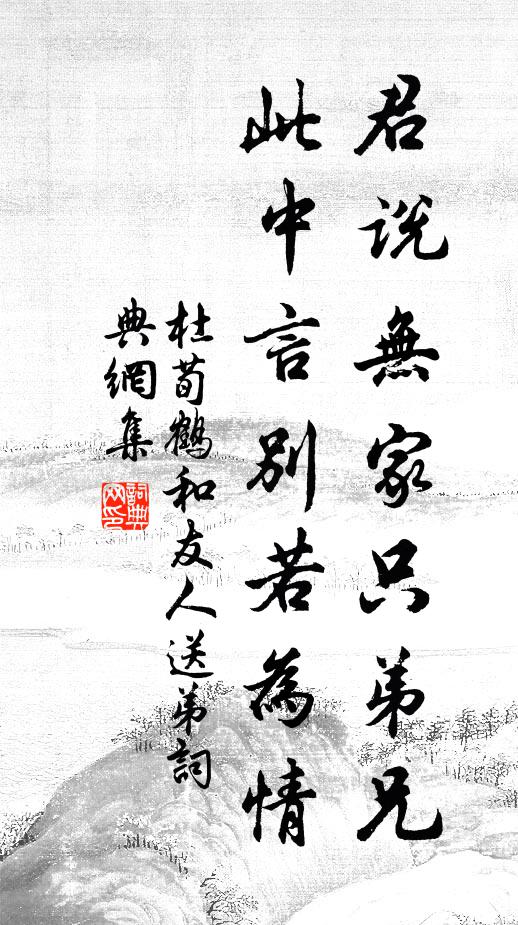 君說無家只弟兄
此中言別若為情
杜荀鶴和友人送弟詞
典網集
詞典网印